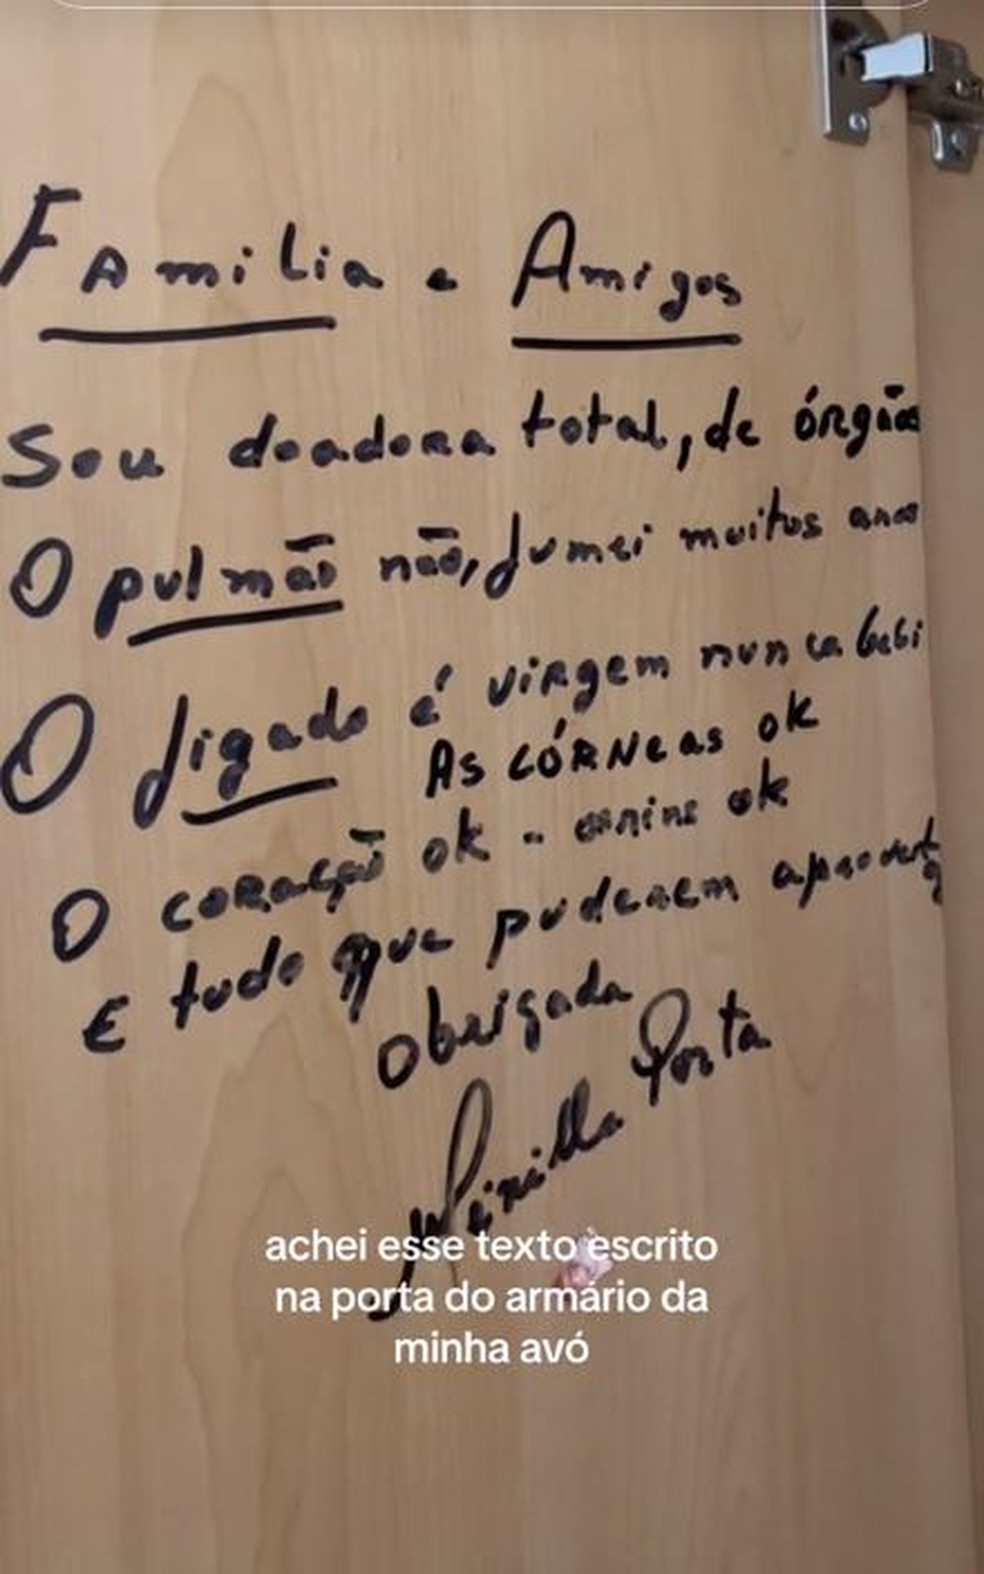 Familia e Amigos
Sou doadora total, de órgãos
O pulmão não, fumei muitos anos
O figado é virgem nunca bebi
As córneas ok
O coração ok - ok
E tudo que puderem
obrigada
Porta
achei esse texto escrito
na porta do armário da
minha avó